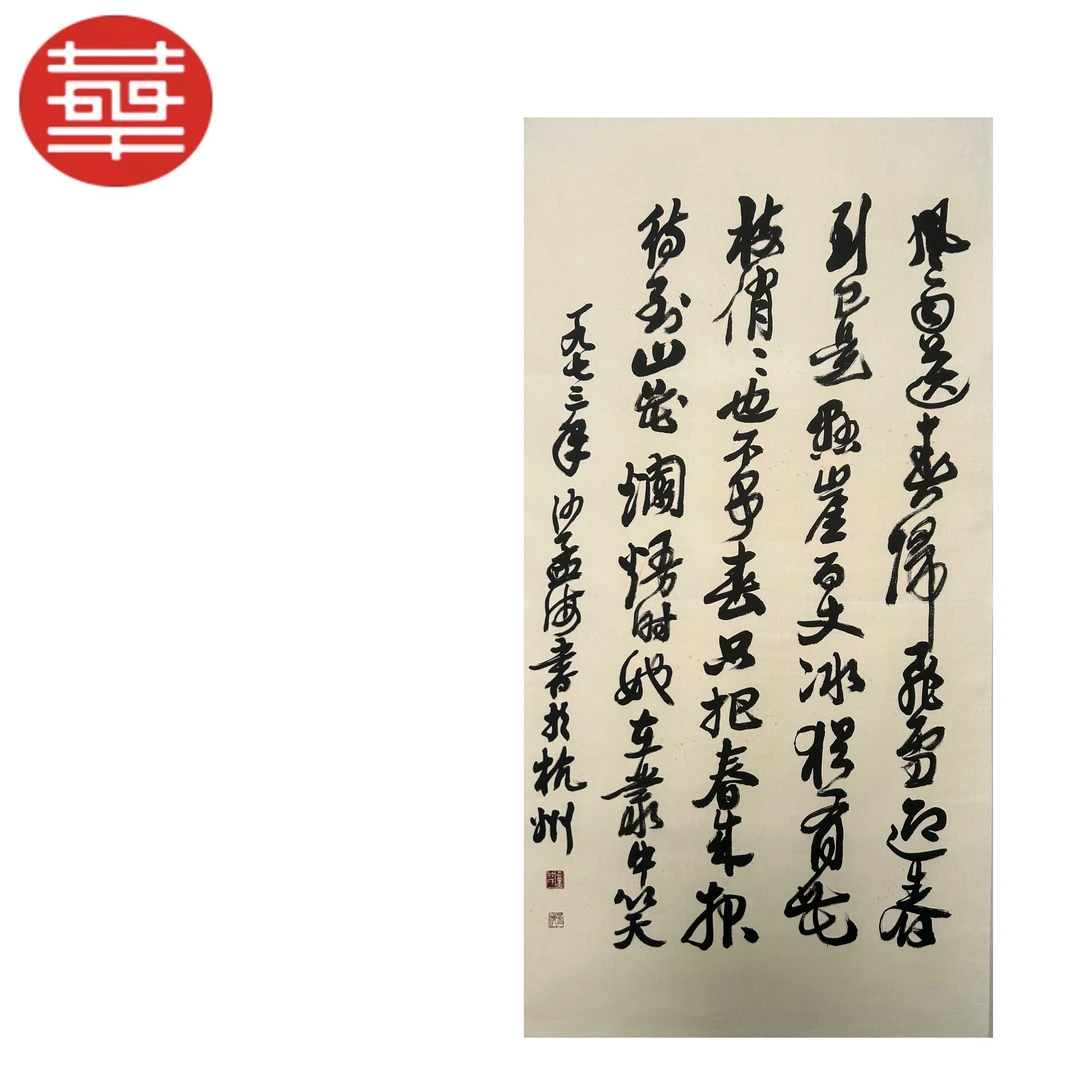 華
風雨送春歸飛雪迎春
到已是懸崖百丈冰猶有花
枝俏〻也不争春只把春来报
待到山花爛熳时她在叢中笑
一九七三年 沙孟海書於杭州